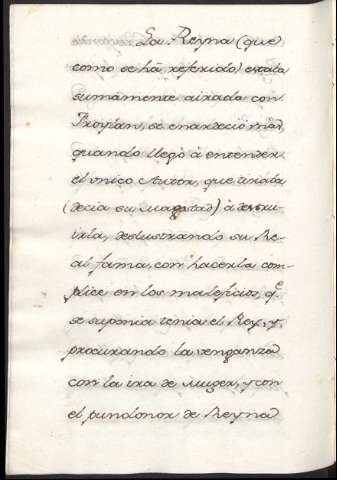 La Reyna (que
como se há referido) estaba
sumamente airada con
Froylan, se enardeció mas,
quando llegò à entender
el vnico Autor, que tiraba
(decia su Magestad) à destru-
irla, deslustrando su Re-
al fama, con hacerla com-
plice en los maleficios, q.e
se suponia tenia el Rey, y
procurando la venganza
con la ira de Muger, y con
el pundonor de Reyna